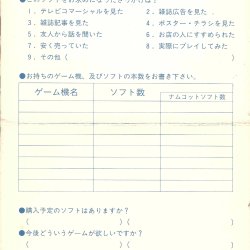 ●このソフトをお求めになったきっかけは？
1．テレビコマーシャルを見た　2．雑誌広告を見た
3．雑誌記事を見た　4．ポスター・チラシを見た
5．友人から話を聞いた　6．お店の人にすすめられた
7．安く売っていた　8．実際にプレイしてみた
9．その他（　）
●お持ちのゲーム機、及びソフトの本数をお書き下さい。
ゲーム機名　ソフト数　ナムコットソフト数
●購入予定のソフトはありますか？
（　）（　）
●今後どういうゲームが欲しいですか？
（　）（　）